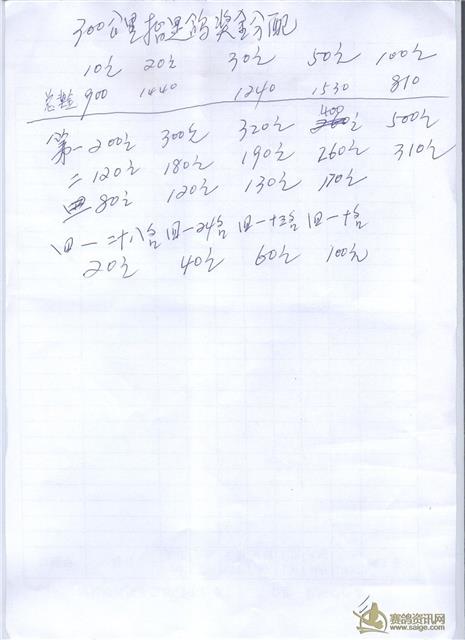 300公里指定鸽奖金分配
10元 20元 30元 50元 100元
总奖金 900 1440 1240 1530 810
第一 200元 300元 320元 400元 500元
二 120元 180元 190元 260元 310元
80元 120元 130元 170元
四一二十八名 四一24名 四一十三名 四一十名
20元 40元 60元 100元
赛鸽资讯网
www.saige.com